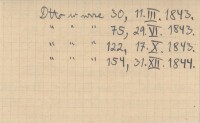 Dtto u nre 30, 11. III. 1843.
" " " 75, 29. VI. 1843.
" " " 122, 17. X. 1843.
" " " 154, 31. XII. 1844.